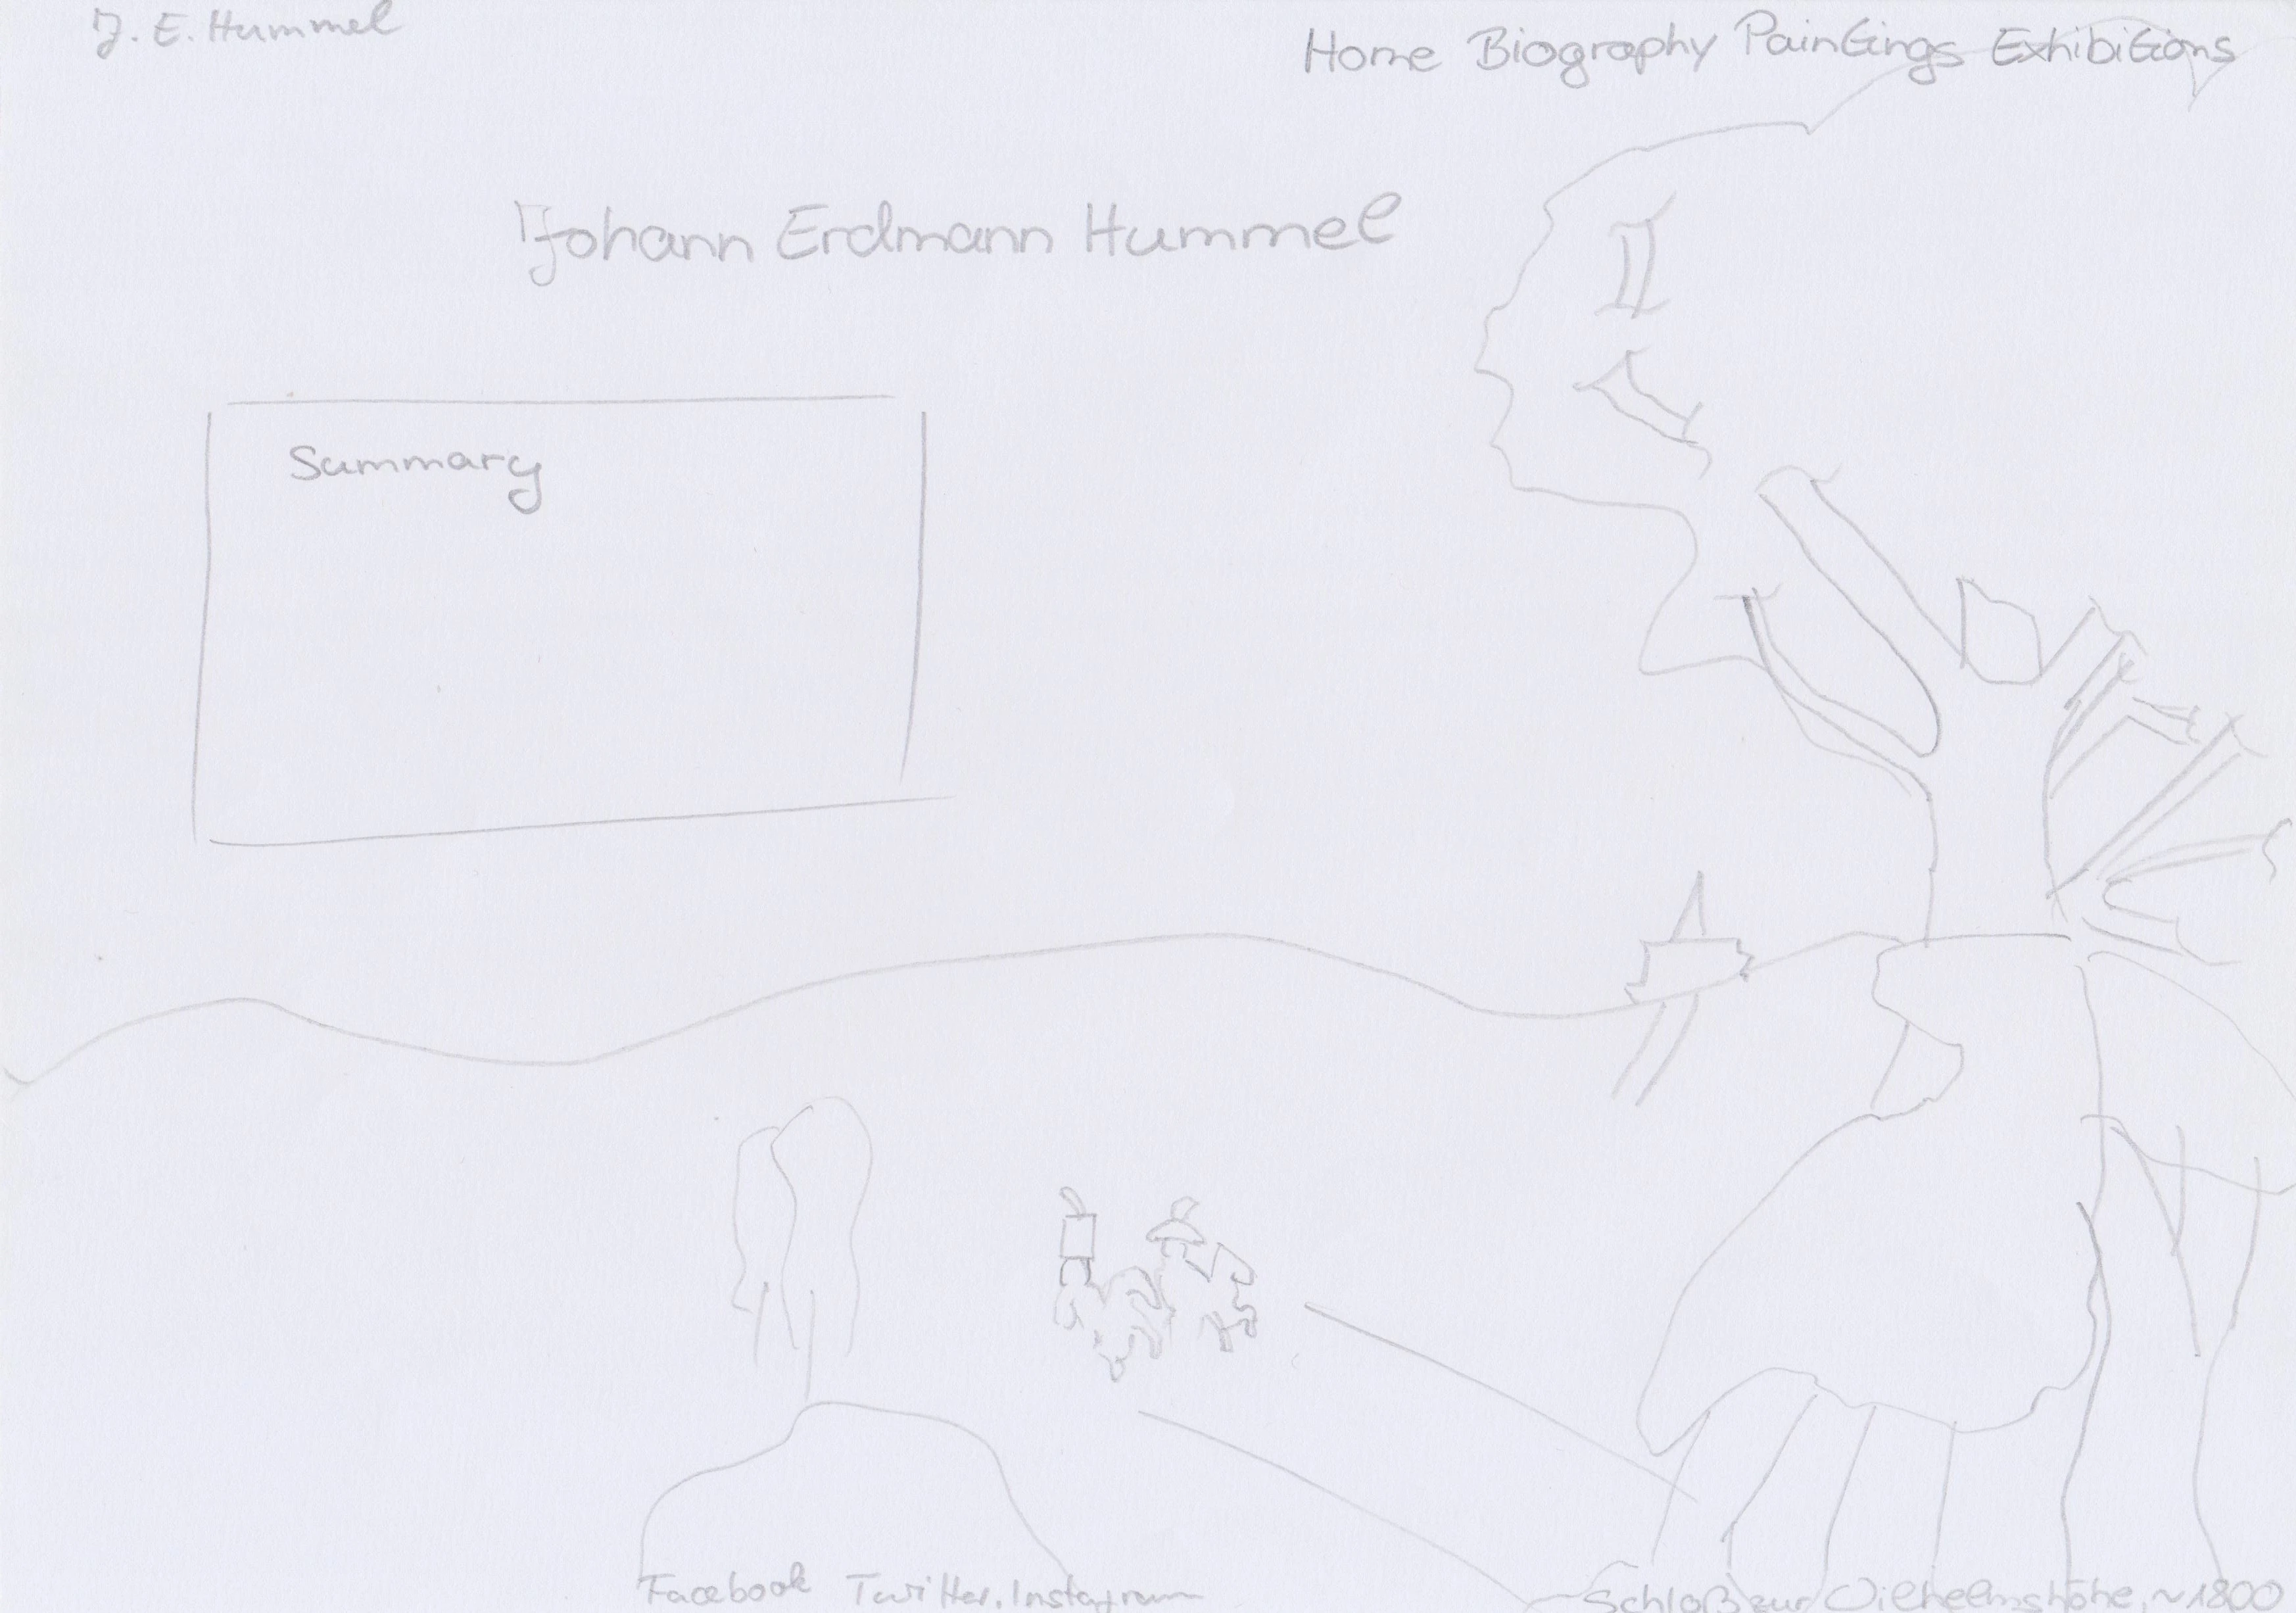 J. E. Hummel
Home Biography Paintings Exhibitions
Johann Erdmann Hummel
Summary
Facebook Twitter, Instagram
Schloß zur Wilhelmshöhe, ~1800